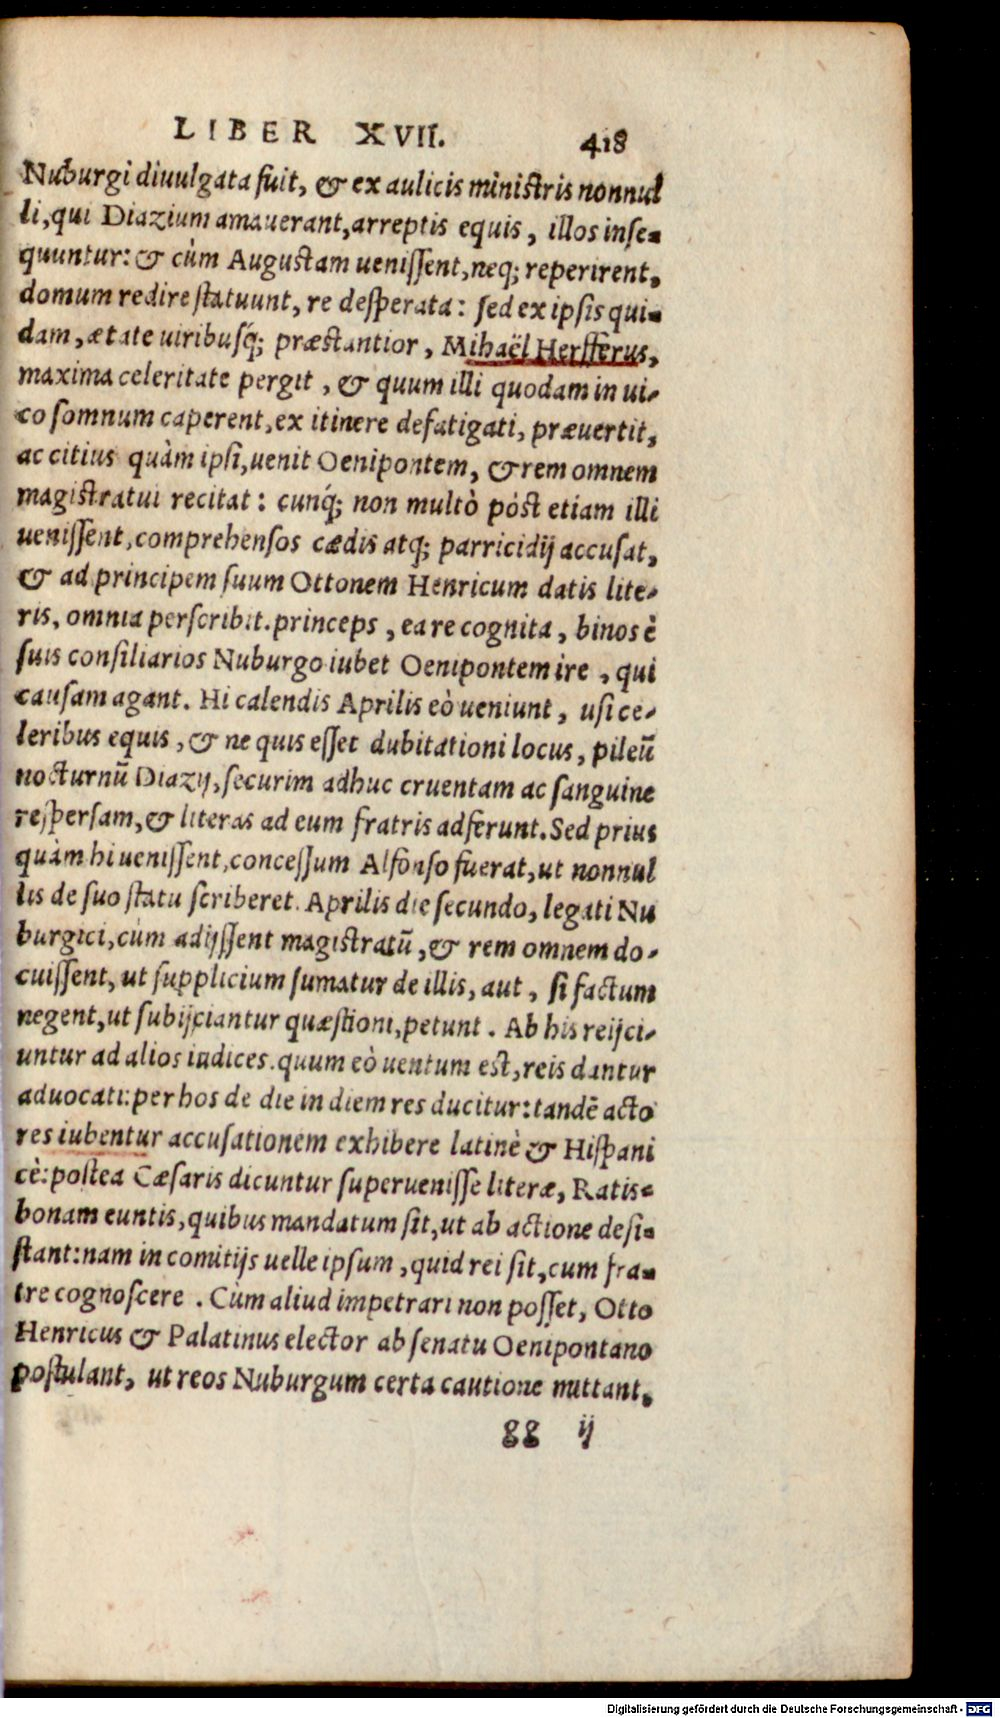 LIBER XVII. 418
Nuburgi diuulgata fuit, & ex aulicis ministris nonnul
li, qui Diazium amauerant, arreptis equis, illos inse-
quuntur: & cùm Augustam uenissent, neq; reperirent,
domum redire statuunt, re desperata: sed ex ipsis qui-
dam, ætate uiribusq́; præstantior, Mihaël Herfferus,
maxima celeritate pergit, & quum illi quodam in ui-
co somnum caperent, ex itinere defatigati, præuertit,
ac citius quàm ipsi, uenit Oenipontem, & rem omnem
magistratui recitat: cunq́; non multò pòst etiam illi
uenissent, comprehensos cædis atq; parricidij accusat,
& ad principem suum Ottonem Henricum datis lite-
ris, omnia perscribit. princeps, ea re cognita, binos è
suis consiliarios Nuburgo iubet Oenipontem ire, qui
causam agant. Hi calendis Aprilis eò ueniunt, usi ce-
leribus equis, & ne quis esset dubitationi locus, pileũ
nocturnũ Diazij, securim adhuc cruentam ac sanguine
respersam, & literas ad eum fratris adferunt. Sed prius
quàm hi uenissent, concessum Alfonso fuerat, ut nonnul
lis de suo statu scriberet. Aprilis die secundo, legati Nu
burgici, cùm adijssent magistratũ, & rem omnem do-
cuissent, ut supplicium sumatur de illis, aut, si factum
negent, ut subijciantur quæstioni, petunt. Ab his reijci-
untur ad alios iudices. quum eò uentum est, reis dantur
aduocati: per hos de die in diem res ducitur: tandẽ acto
res iubentur accusationem exhibere latinè & Hispani
cè: postea Cæsaris dicuntur superuenisse literæ, Ratis-
bonam euntis, quibus mandatum sit, ut ab actione desi-
stant: nam in comitijs uelle ipsum, quid rei sit, cum fra-
tre cognoscere. Cùm aliud impetrari non posset, Otto
Henricus & Palatinus elector ab senatu Oenipontano
postulant, ut reos Nuburgum certa cautione mittant,
gg ij
Digitalisierung gefördert durch die Deutsche Forschungsgemeinschaft - DFG